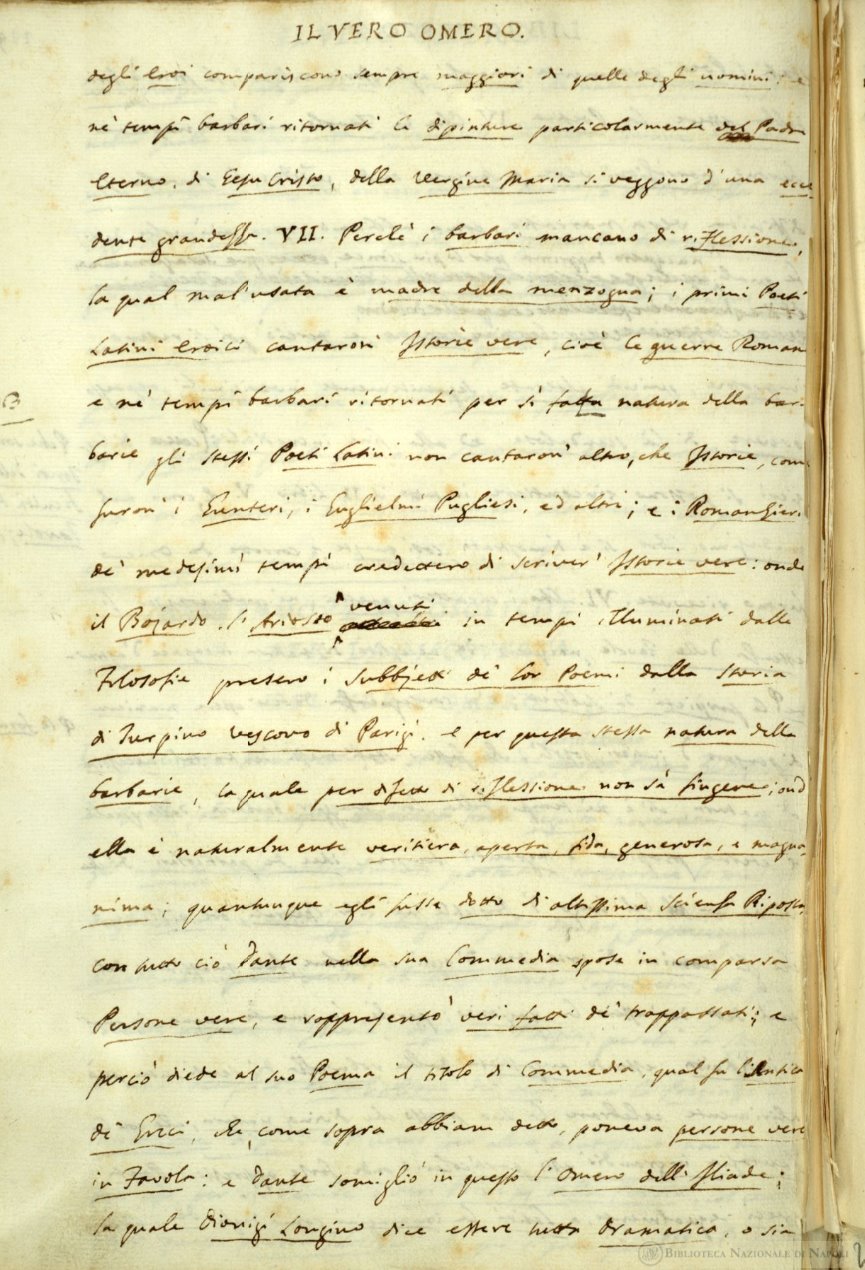 IL VERO OMERO.
degli Eroi compariscono sempre maggiori di quelle degli uomini: e
ne' tempi barbari ritornati le dipinture particolarmente del Padre
Eterno, di Gesu Cristo, della Vergine Maria si veggono d'una ecce
dente grandezza. VII. Perchè i barbari mancano di riflessione,
la qual mal'usata è madre della menzogna; i primi Poeti
Latini Eroici cantaron' Istorie vere, cioè le guerre Roman
e ne' tempi barbari ritornati per sì fatta natura della bar-
3
barie gli stessi Poeti Latini non cantaron' altro, che Istorie, com
furon' i Gunteri, i Guglielmi Pugliesi, ed altri; e i Romanzieri
de' medesimi tempi credettero di scriver' Istorie vere: onde
il Bojardo, l'Ariosto venuti in tempi illuminati dalle
Filosofie presero i subbjetti de' lor Poemi dalla Storia
di Turpino Vescovo di Parigi. e per questa stessa natura della
barbarie, la quale per difetto di riflessione non sà fingere; ond
ella è naturalmente veritiera, aperta, fida, generosa, e magna
nima; quantunque egli fusse dotto di altissima Scienza Riposta,
con tutto ciò Dante nella sua Commedia spose in comparsa
Persone vere, e rappresentò veri fatti de' trappassati; e
perciò diede al suo Poema il titolo di Commedia, qual fu l'Antica
de' Greci, che, come sopra abbiam detto, poneva persone vere
in Favola: e Dante somigliò in questo l'Omero dell'Iliade;
la quale Dionigi Longino dice essere tutta dramatica, o sia
BIBLIOTECA NAZIONALE DI NAPOLI